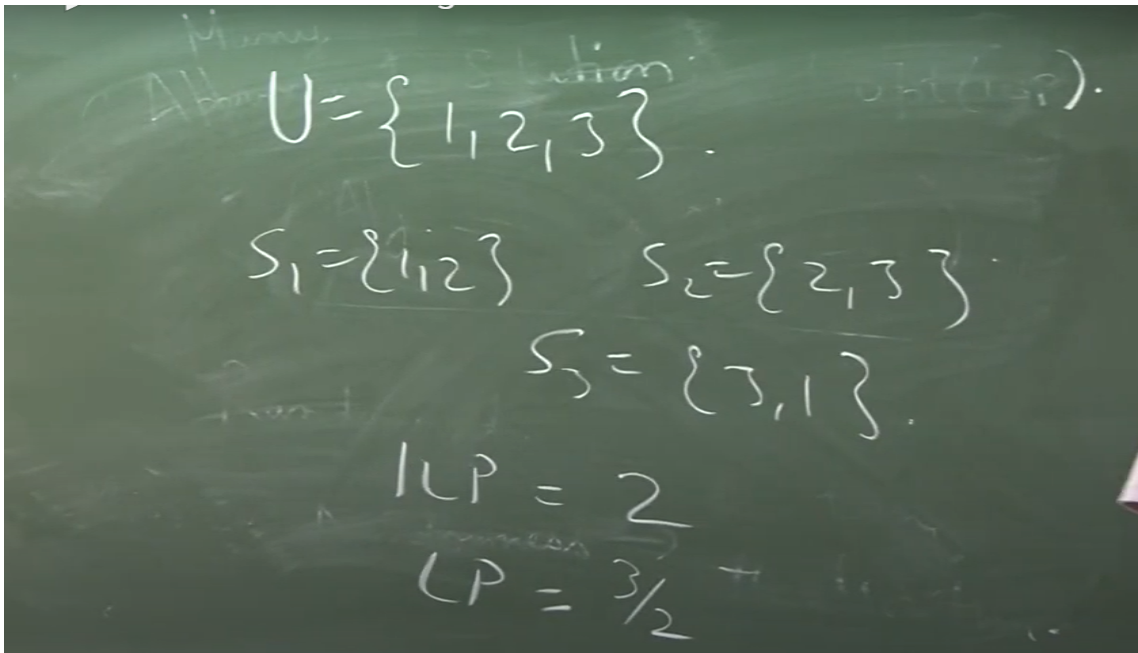 Many
U = { 1, 2, 3 } .
S₁ = {1,2} S₂ = { 2, 3 }
S₃ = { 3, 1 } .
ILP = 2
LP = 3/2